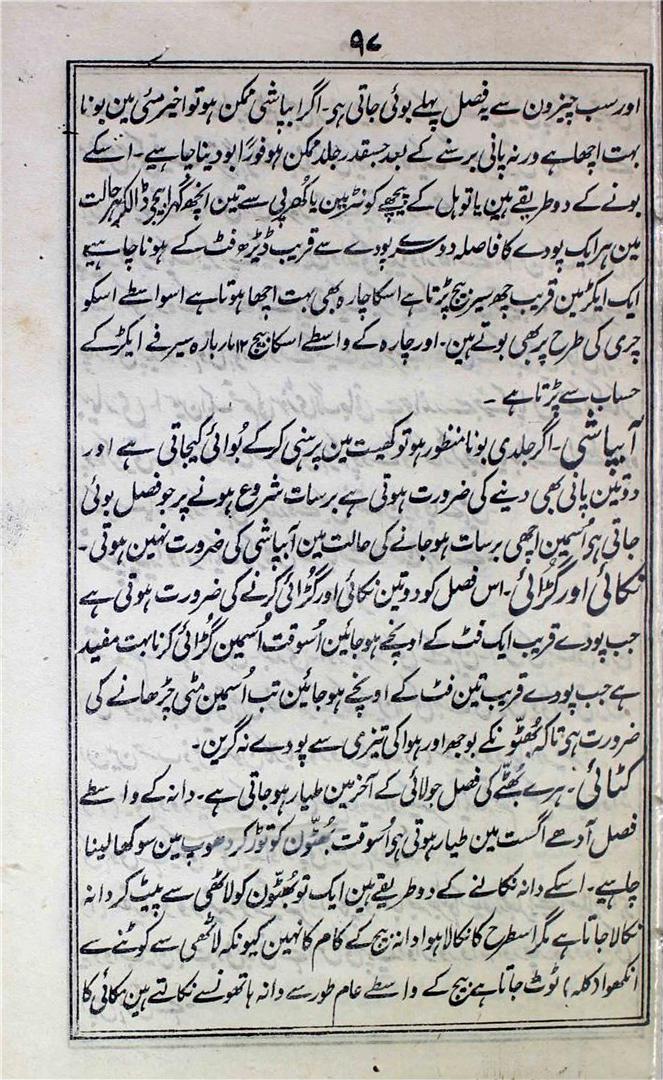 ۹۸
اور سب چیزون سے یہ فصل پہلے بوئی جاتی ہی۔ اگر ابپاشی ممکن ہو تو اخیر مئی مین بونا
بہت اچھا ہے ورنہ پانی برسنے کے بعد جسقدر جلد ممکن ہو فوراً بو دینا چاہیے۔ اسکے
بونے کے دو طریقے ہین یا تو ہل کے پیچھے کونڑ مین یا کھرپی سے تین انچھ گہرا بیج ڈالکر ہر حالت
مین ہر ایک پودے کا فاصلہ دوسرے پودے سے قریب ڈیڑھ فٹ کے ہونا چاہیے
ایک ایکڑ مین قریب چھ سیر بیج پڑتا ہے اسکا چارہ بھی بہت اچھا ہوتا ہے اسواسطے اسکو
چری کی طرح پر بھی بوتے ہین۔ اور چارہ کے واسطے اسکا بیج ۱۲ بارہ سیر فے ایکڑ کے
حساب سے پڑتا ہے ۔
آبپاشی۔ اگر جلدی بونا منظور ہو تو کھیت مین پرہنی کرکے بُوائی کیجاتی ہے اور
دو تین پانی بھی دینے کی ضرورت ہوتی ہے برسات شروع ہونے پر جو فصل بوئی
جاتی ہو اُسمین اچھی برسات ہو جانے کی حالت مین آبپاشی کی ضرورت نہین ہوتی۔
نکائی اور گُڑائی۔ اس فصل کو دو تین نکائی اور گُڑائی کرنے کی ضرورت ہوتی ہے
جب پودے قریب ایک فٹ کے اونچے ہو جائین اُسوقت اُسمین گُڑائی کرنا بہت مفید
ہے جب پودے قریب تین فٹ کے اونچے ہو جائین تب اُسمین مٹی چڑھانے کی
ضرورت ہی تاکہ بُھٹّونکے بوجھ اور ہوا کی تیزی سے پودے نہ گرین۔
کٹائی۔ ہرے بُھٹّے کی فصل جولائی کے آخر مین طیار ہو جاتی ہے۔ دانہ کے واسطے
فصل آدھے اگست مین طیار ہوتی ہو اُسوقت بُھٹّون کو توڑ کر دھوپ مین سوکھا لینا
چاہیے۔ اسکے دانہ نکالنے کے دو طریقے ہین ایک تو بُھٹّون کو لاٹھی سے پیٹ کر دانہ
نکالا جاتا ہے مگر اسطرح کا نکالا ہوا دانہ بیج کے کام کا نہین کیونکہ لاٹھی سے کوٹنے سے
انکھوا (کلہ) ٹوٹ جاتا ہے بیج کے واسطے عام طور سے دانہ ہاتھونسے نکالتے ہین مکائی کا